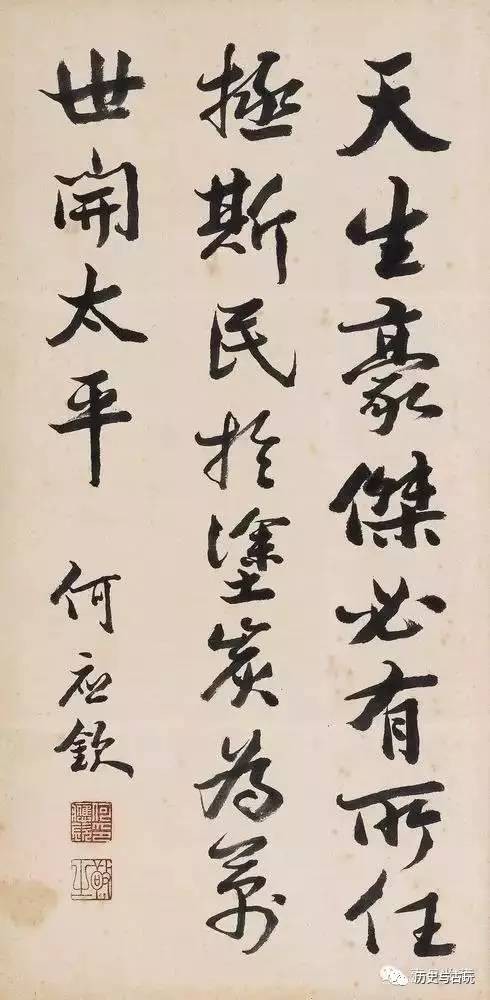 天生豪傑必有所任
拯斯民於塗炭為萬
世開太平
何應欽
何應欽印
敬之
历史与古玩